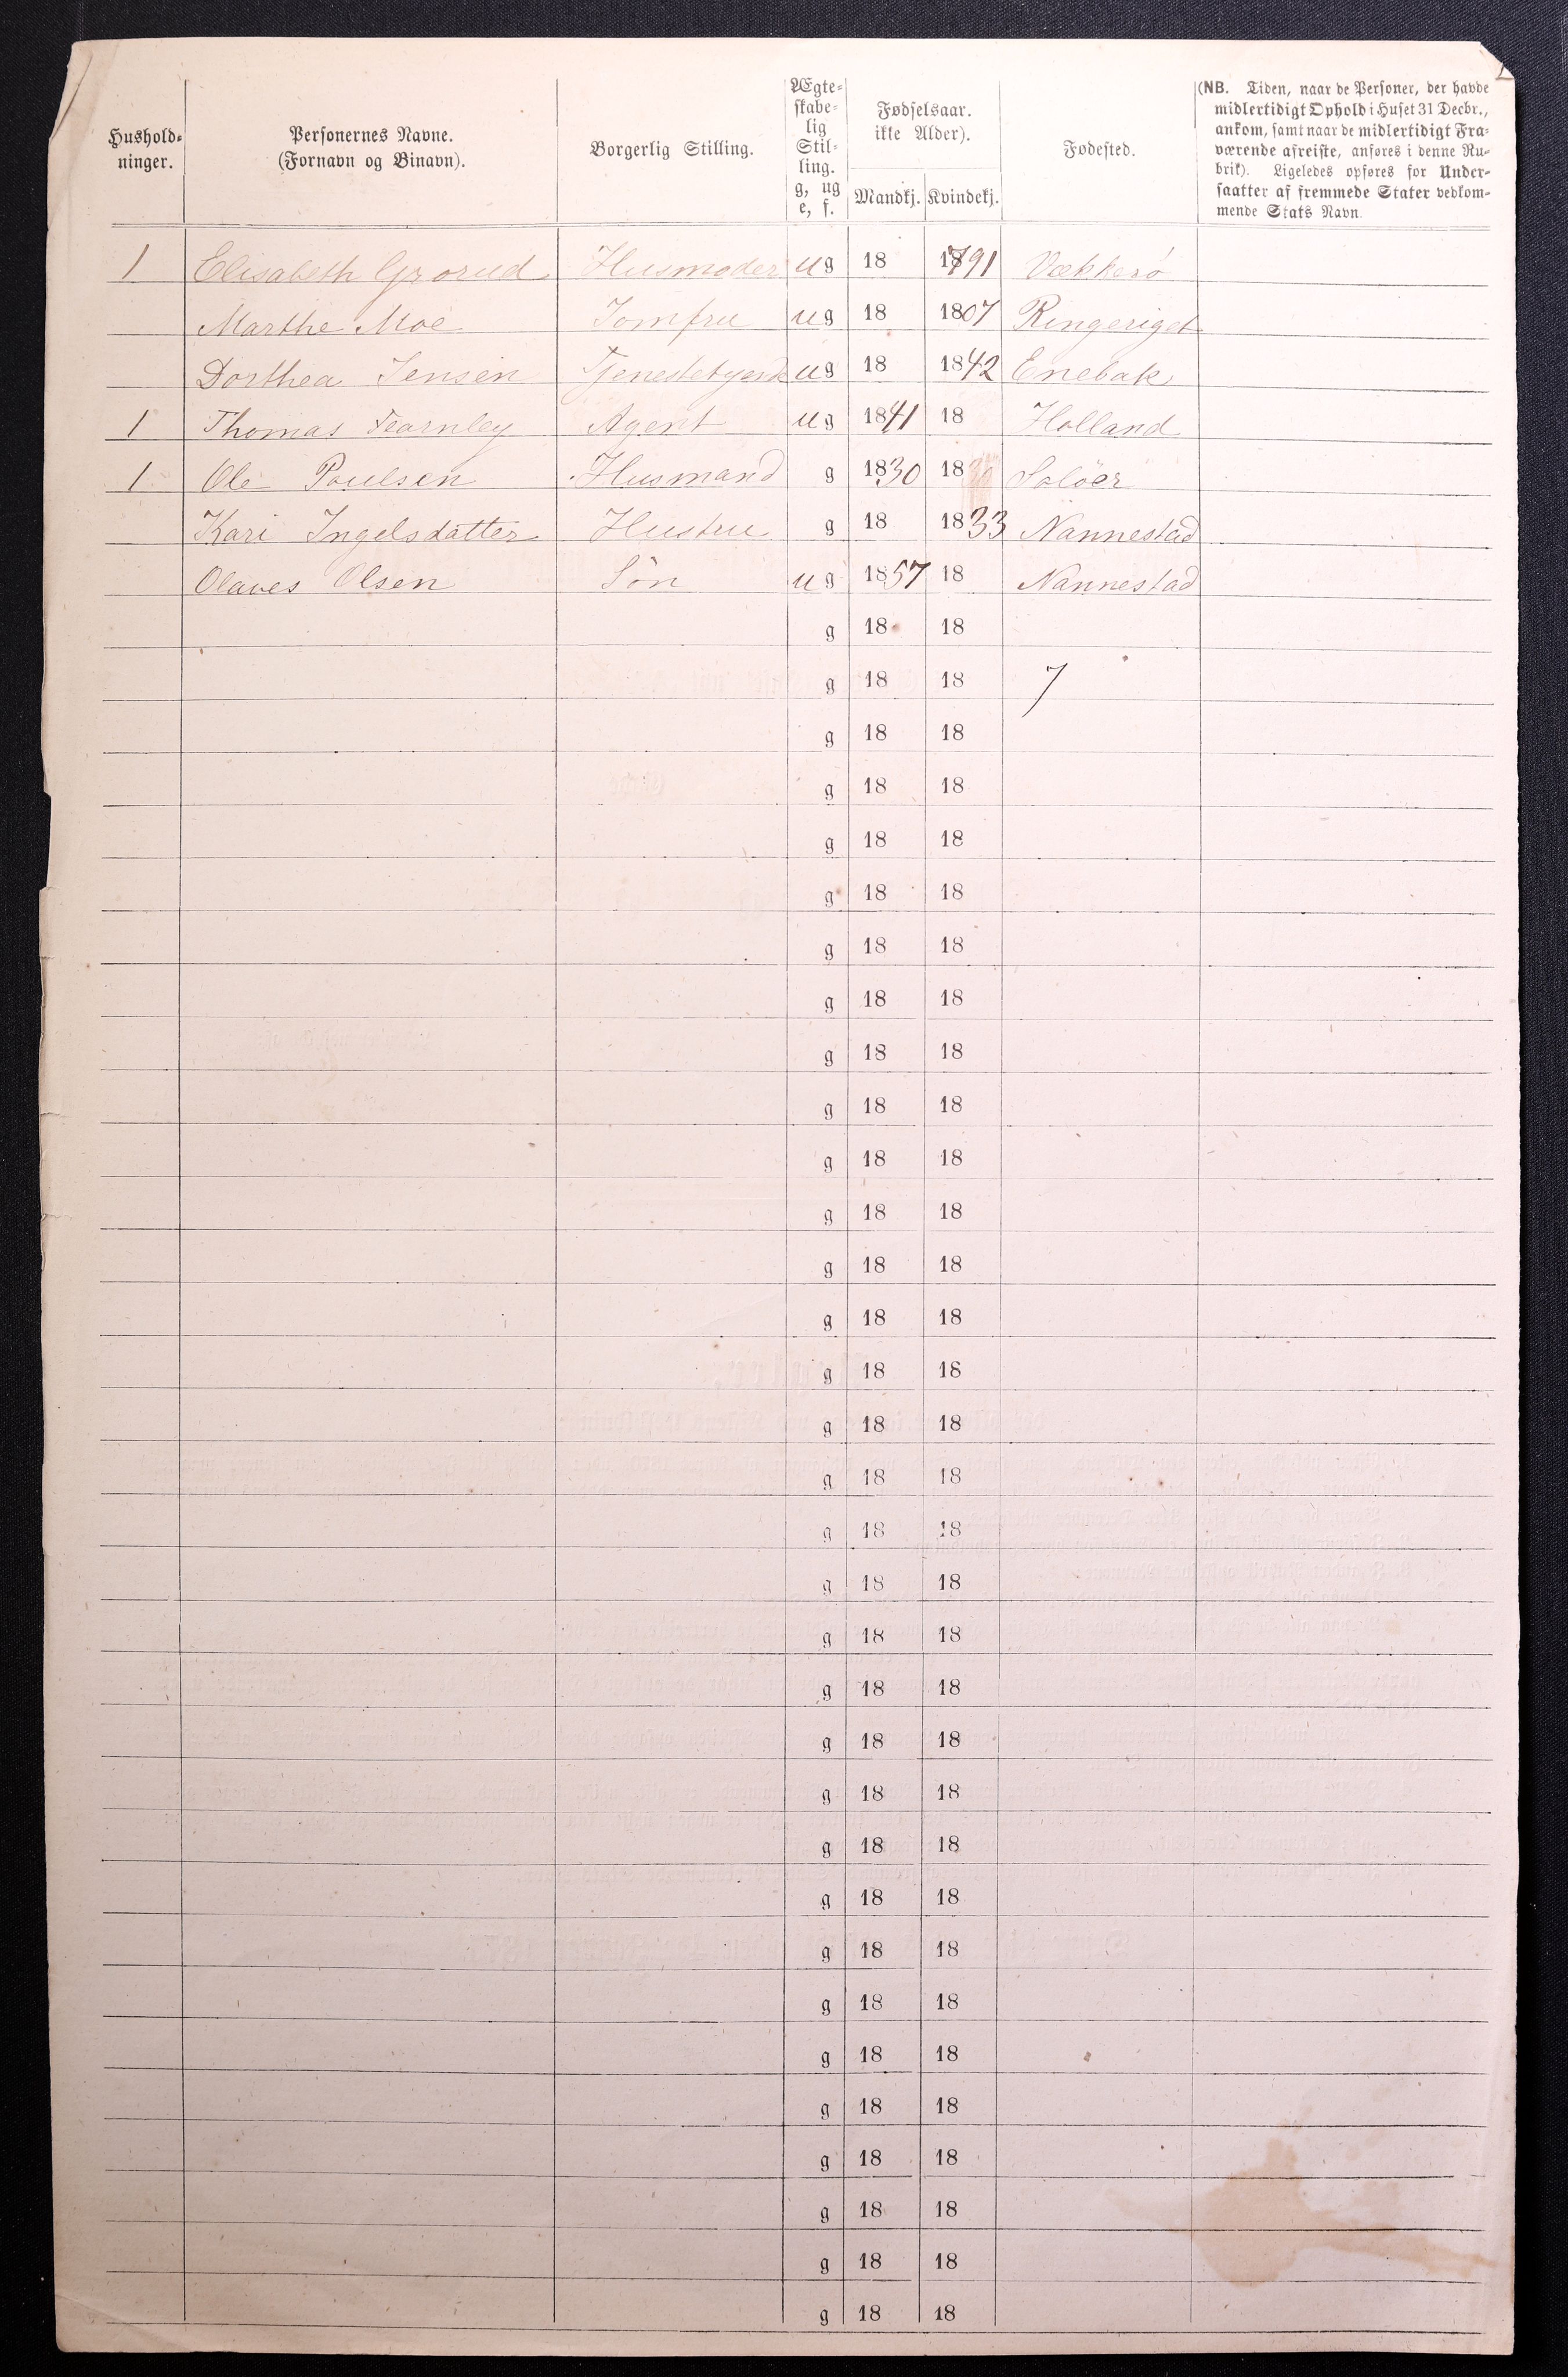 Hushold-
ninger.
Personernes Navne.
(Fornavn og Binavn).
Borgerlig Stilling.
Ægte-
skabe-
lig
Stil-
ling.
g, ug
e, f.
Fødselsaar.
ikke Alder).
Mandkj. Kvindekj.
Fødested.
(NB. Tiden, naar de Personer, der havde
midlertidigt Ophold i Huset 31 Decbr.,
ankom, samt naar de midlertidigt Fra-
værende afreiste, anføres i denne Ru-
brik). Ligeledes opføres for Under-
saatter af fremmede Stater vedkom-
mende Stats Navn.
1 Elisabeth Grorud Husmoder ug 18 1791 Vækkerö
Marthe Moe Jomfru ug 18 1807 Ringeriget
Dorthea Jensen Tjenestetyende ug 18 1842 Enebak
1 Thomas Fearnley Agent ug 1841 18 Holland
1 Ole Poulsen Husmand g 1830 18 Solöer
Kari Ingelsdatter Hustru g 18 1833 Nannestad
Olaves Olsen Sön ug 1857 18 Nannestad
g 18 18
g 18 18 7
g 18 18
g 18 18
g 18 18
g 18 18
g 18 18
g 18 18
g 18 18
g 18 18
g 18 18
g 18 18
g 18 18
g 18 18
g 18 18
g 18 18
g 18 18
g 18 18
g 18 18
g 18 18
g 18 18
g 18 18
g 18 18
g 18 18
g 18 18
g 18 18
g 18 18
g 18 18
g 18 18
g 18 18
g 18 18
g 18 18
g 18 18